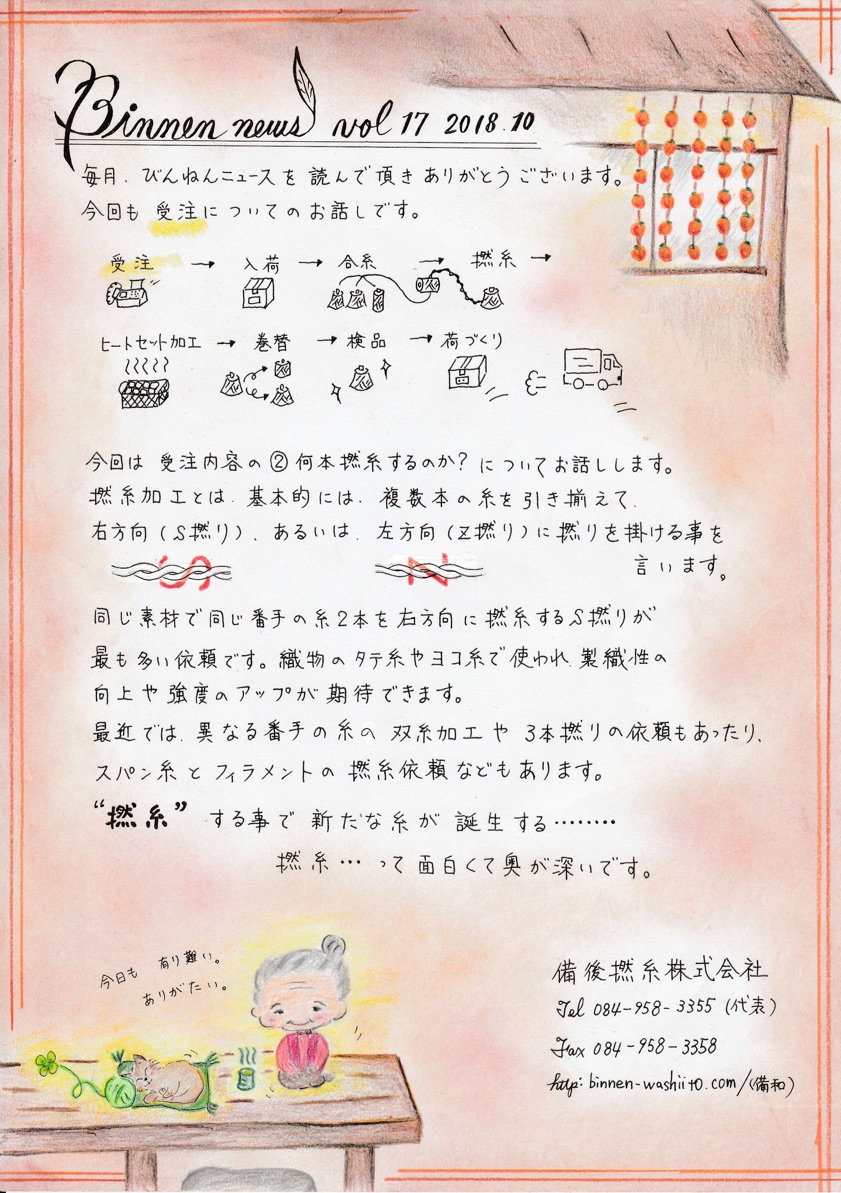 Binnen news vol 17 2018.10
毎月、びんねんニュースを読んで頂きありがとうございます。
今回も受注についてのお話しです。
受注 → 入荷 → 合糸 → 撚糸 →
ヒートセット加工 → 巻替 → 検品 → 荷づくり
今回は受注内容の②何本撚糸するのか?についてお話しします。
撚糸加工とは、基本的には、複数本の糸を引き揃えて、
右方向(S撚り)、あるいは、左方向(Z撚り)に撚りを掛ける事を
言います。
S Z
同じ素材で同じ番手の糸2本を右方向に撚糸するS撚りが
最も多い依頼です。織物のタテ糸やヨコ糸で使われ、製織性の
向上や強度のアップが期待できます。
最近では、異なる番手の糸の双糸加工や3本撚りの依頼もあったり、
スパン糸とフィラメントの撚糸依頼などもあります。
“撚糸”する事で新たな糸が誕生する‥‥‥‥
撚糸…って面白くて奥が深いです。
今日も有り難い。
ありがたい。
備後撚糸株式会社
Tel 084-958-3355 (代表)
Fax 084-958-3358
http: binnen-washiito.com/(備和)